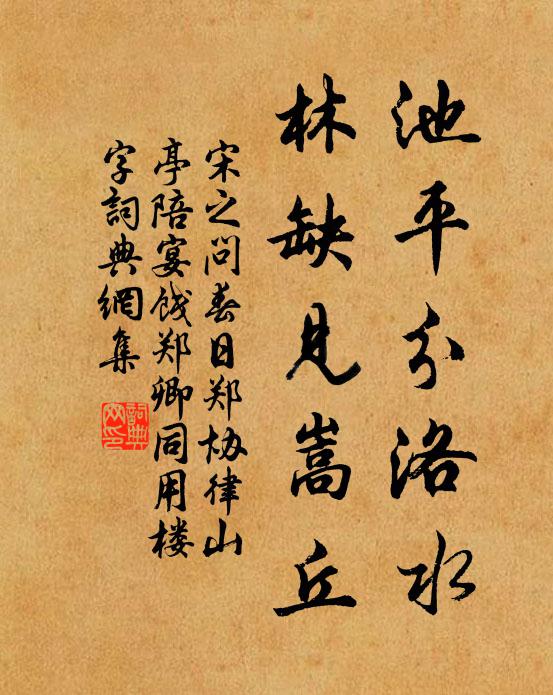 池平分洛水
林缺见嵩丘
宋之问春日郑协律山
亭陪宴饯郑卿同用楼
字詞典網集
詞典
网印